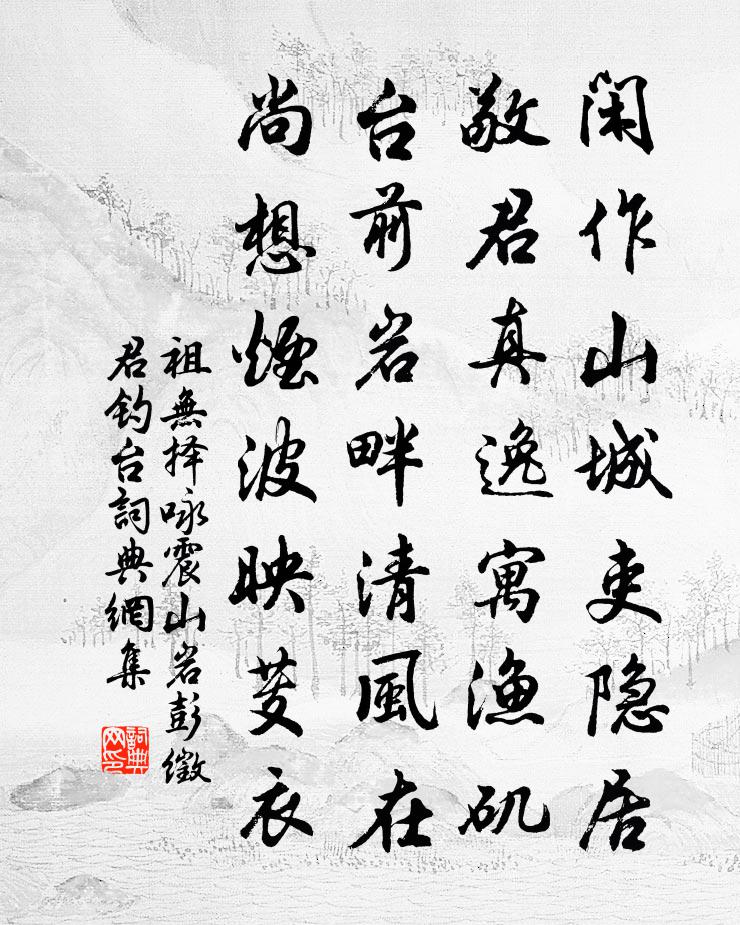 闲作山城吏隐居
敬君真逸寓渔矶
台前岩畔清风在
尚想烟波映芰衣
祖無择咏震山岩彭徵
君钓台詞典網集
詞典
网印